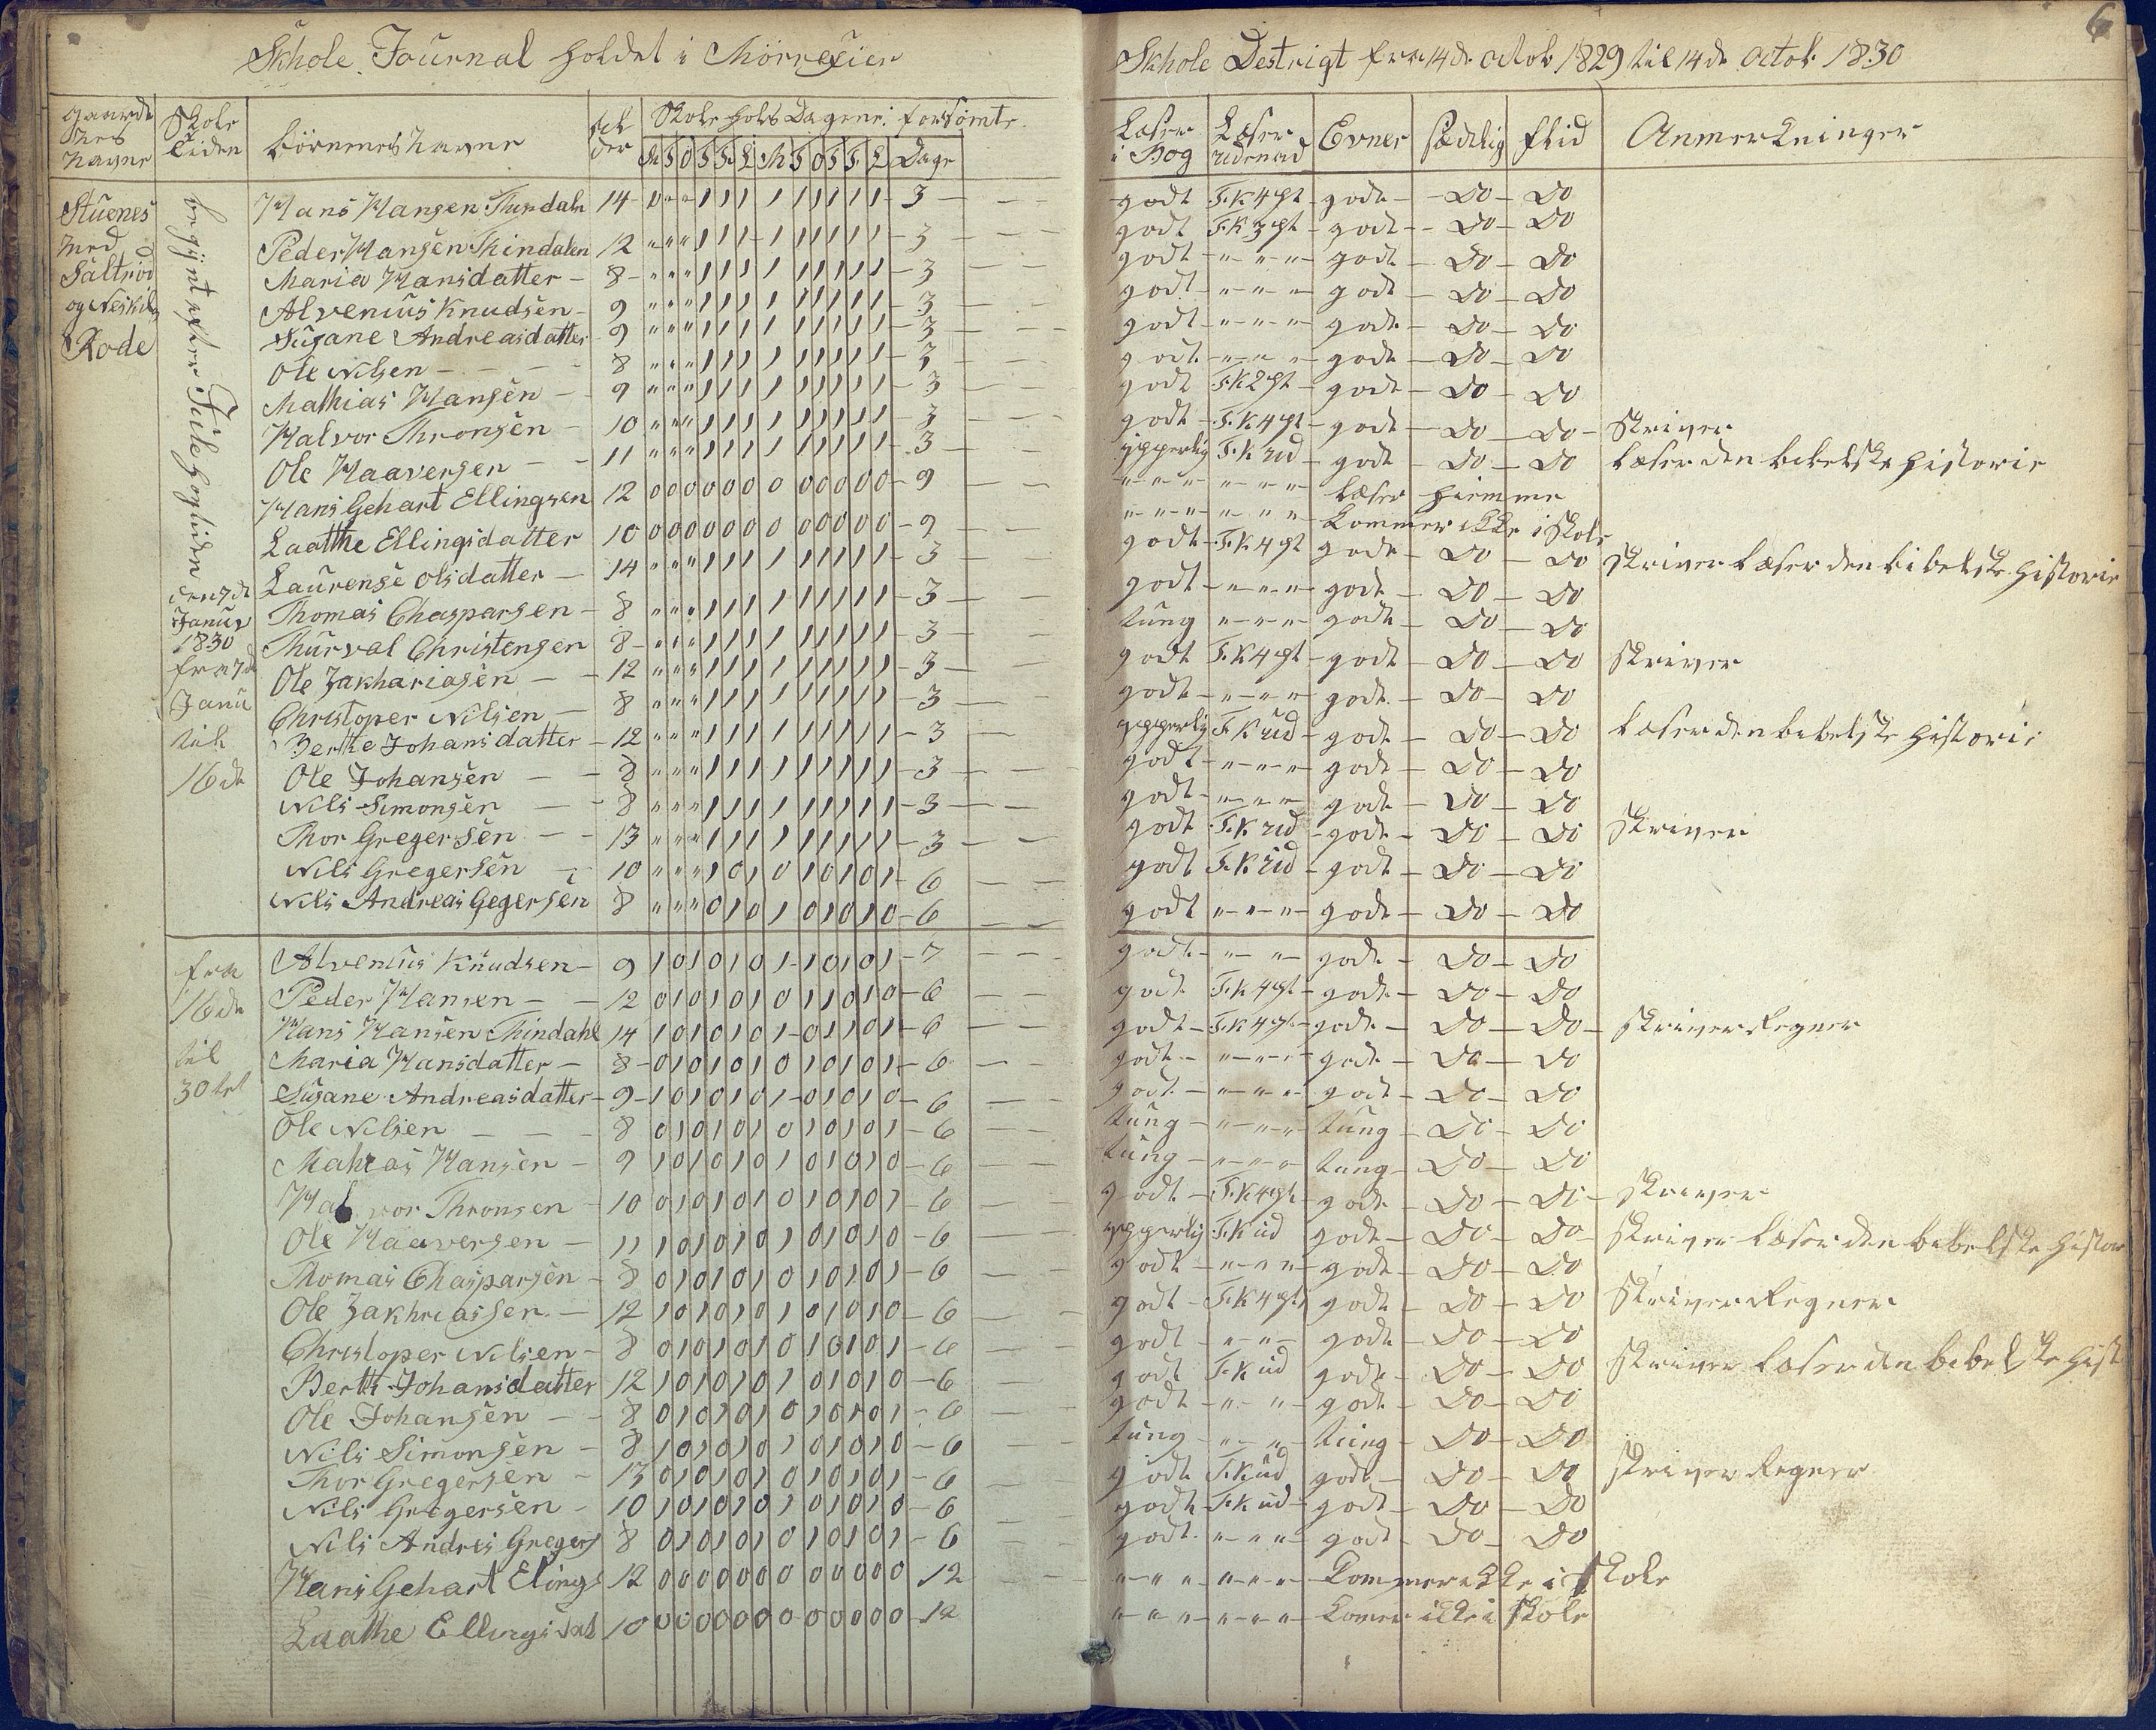 6
Skhole Journal holdet i Mörrefier Skhole Destrigt fra 14de octob 1829 til 14de octob. 1830
gaarde nes navne | Skole tiden | börnenes navne | Skole holds Dagene: forsömte Dage | Læser i Bog | Læser udenad | Evner | sædelig | flid | Anmerkninger
M T O T F L M T O T F L
Stuenes med Saltröd og Neskil Rode
begÿnt efter Julehögtiden den 7de Janu 1830 fra 7de Janu til 16de
Hans Hansen Thindahl 14 3 godt F.K 4 pt godt Do Do
Peder Hansen Thindalen 12 3 godt F.K 3 pt godt Do Do
Maria Hansdatter 8 3 godt " " " godt Do Do
Alvenius Knudsen 9 3 godt " " " godt Do Do
Susane Andreasdatter 9 3 godt " " " godt Do Do
Ole Nilsen 8 3 godt " " " godt Do Do
Mathias Hansen 9 3 godt F.K 2 pt godt Do Do
Halvor Thronsen 10 3 godt F.K 4 pt godt Do Do skriver
Ole Haaversen 11 3 ypperlig F.K ud godt Do Do læser den bibelske historie
Hans Gehart Ellingsen 12 0 0 0 0 0 0 0 0 0 0 0 0 9 " " " " " " læser hiemme
Laathe Ellingsdatter 10 0 0 0 0 0 0 0 0 0 0 0 0 9 " " " " " " kommer ikke i skole
Laurense Olsdatter 14 3 godt F.K 4 pt godt Do Do skriver læser den bibelske historie
Thomas Chasparsen 8 3 godt " " " godt Do Do
Thurval Christensen 8 3 tung " " " godt Do Do
Ole Zakhariasen 12 3 godt F.K 4 pt godt Do Do skriver
Christoper Nilsen 8 3 godt " " " godt Do Do
Berthe Johansdatter 12 3 ypperlig F.K ud godt Do Do læser den bibelske historie
Ole Johansen 8 3 godt " " " godt Do Do
Nils Simonsen 8 3 godt " " " godt Do Do
Thor Gregersen 13 3 godt F.K ud godt Do Do skriver
Nils Gregersen 10 " " " 1 0 1 0 1 0 1 0 1 6 godt F.K ud godt Do Do
Nils Andreas Gegersen 8 " " " 0 1 0 1 0 1 0 1 0 6 godt " " " godt Do Do
fra 16de til 30te
Alvenius Knudsen 9 7 godt " " " godt Do Do
Peder Hansen 12 6 godt F.K 4 pt godt Do Do
Hans Hansen Thindahl 14 6 godt F.K 4 pt godt Do Do skriver Regner
Maria Hansdatter 8 0 1 0 1 0 1 0 1 0 1 0 1 6 godt " " " godt Do Do
Susane Andreasdatter 9 1 0 1 0 1 0 1 0 1 0 1 0 6 godt " " " godt Do Do
Ole Nilsen 8 0 1 0 1 0 1 0 1 0 1 0 1 6 tung " " " tung Do Do
Mahtas Hansen 9 1 0 1 0 1 0 1 0 1 0 1 0 6 tung " " " tung Do Do
Halvor Thronsen 10 0 1 0 1 0 1 0 1 0 1 0 1 6 godt F.K 4 pt godt Do Do skriver
Ole Haaversen 11 1 0 1 0 1 0 1 0 1 0 1 0 6 ypperlig F.K ud godt Do Do skriver læser den bibelske histor
Thomas Chasparsen 8 0 1 0 1 0 1 0 1 0 1 0 1 6 godt " " " godt Do Do
Ole Zakhriassen 12 1 0 1 0 1 0 1 0 1 0 1 0 6 godt F.K 4 pt godt Do Do skriver Regner
Christoper Nilsen 8 0 1 0 1 0 1 0 1 0 1 0 1 6 godt " " " godt Do Do
Berthe Johansdatter 12 1 0 1 0 1 0 1 0 1 0 1 0 6 godt F.K ud godt Do Do skriver læser den bibelske hist
Ole Johansen 8 0 1 0 1 0 1 0 1 0 1 0 1 6 godt " " " godt Do Do
Nils Simonsen 8 1 0 1 0 1 0 1 0 1 0 1 0 6 tung " " " tung Do Do
Thor Gregersen 13 0 1 0 1 0 1 0 1 0 1 0 1 6 godt F.K ud godt Do Do skriver Regner
Nils Gregersen 10 1 0 1 0 1 0 1 0 1 0 1 0 6 godt F.K ud godt Do Do
Nils Andres Gregers 8 0 1 0 1 0 1 0 1 0 1 0 1 6 godt " " " godt Do Do
Hans Gehart Elings 12 0 0 0 0 0 0 0 0 0 0 0 0 12 " " " " " " kommer ikke i skole
Laathe Ellingsdat 10 0 0 0 0 0 0 0 0 0 0 0 0 12 " " " " " " komer ikke i skole